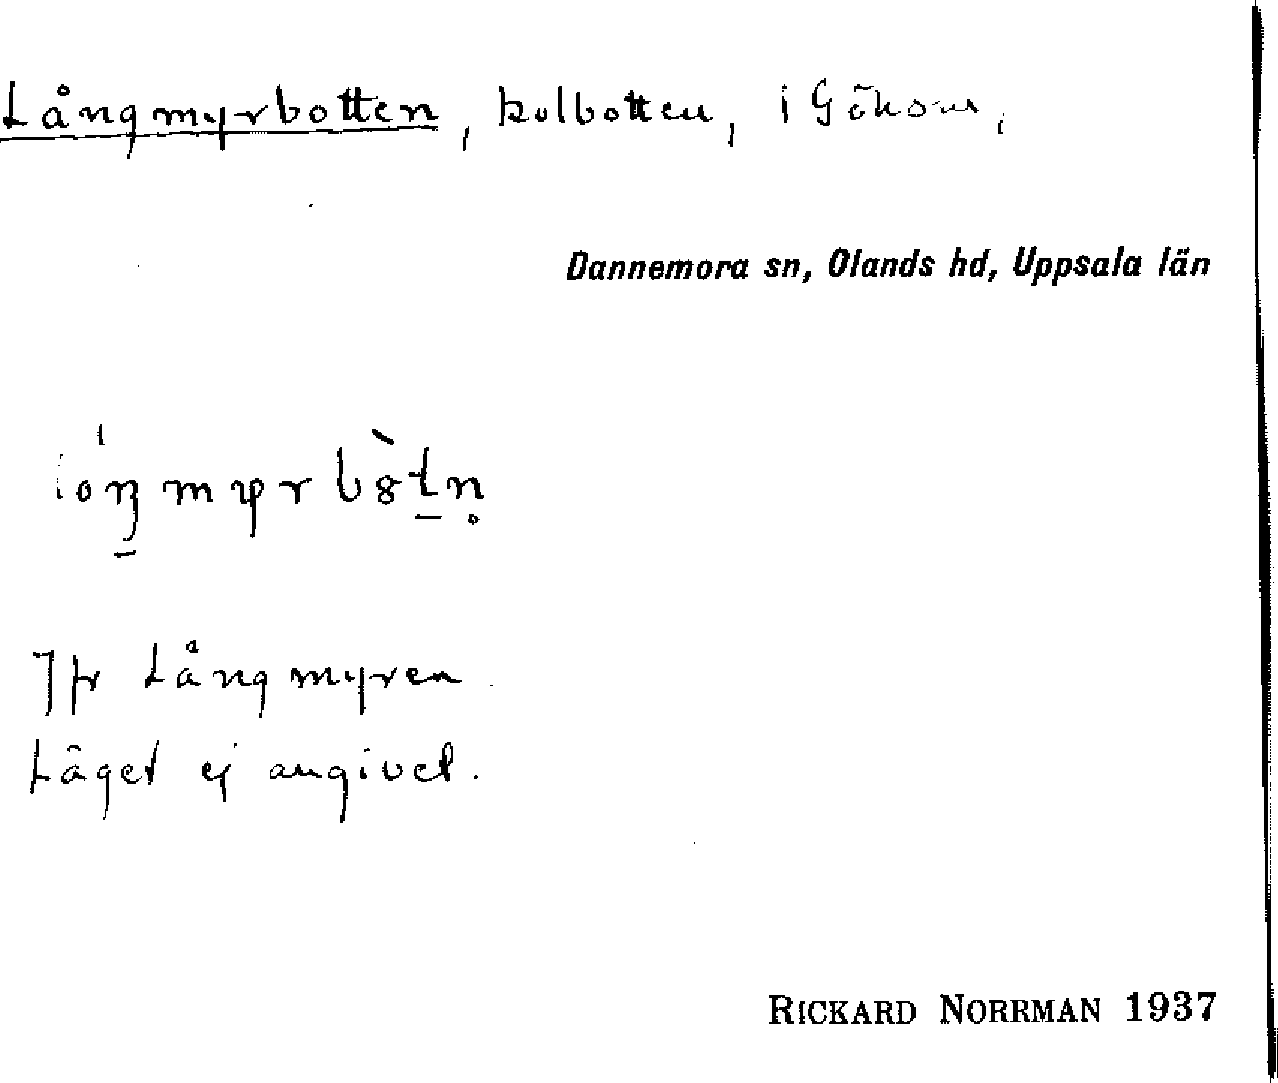 Långmyrbotten, kolbotten, i Gökom,
Dannemora sn, Olands hd, Uppsala län
Jfr Långmyren
Läget ej angivet.
RICKARD NORRMAN 1937